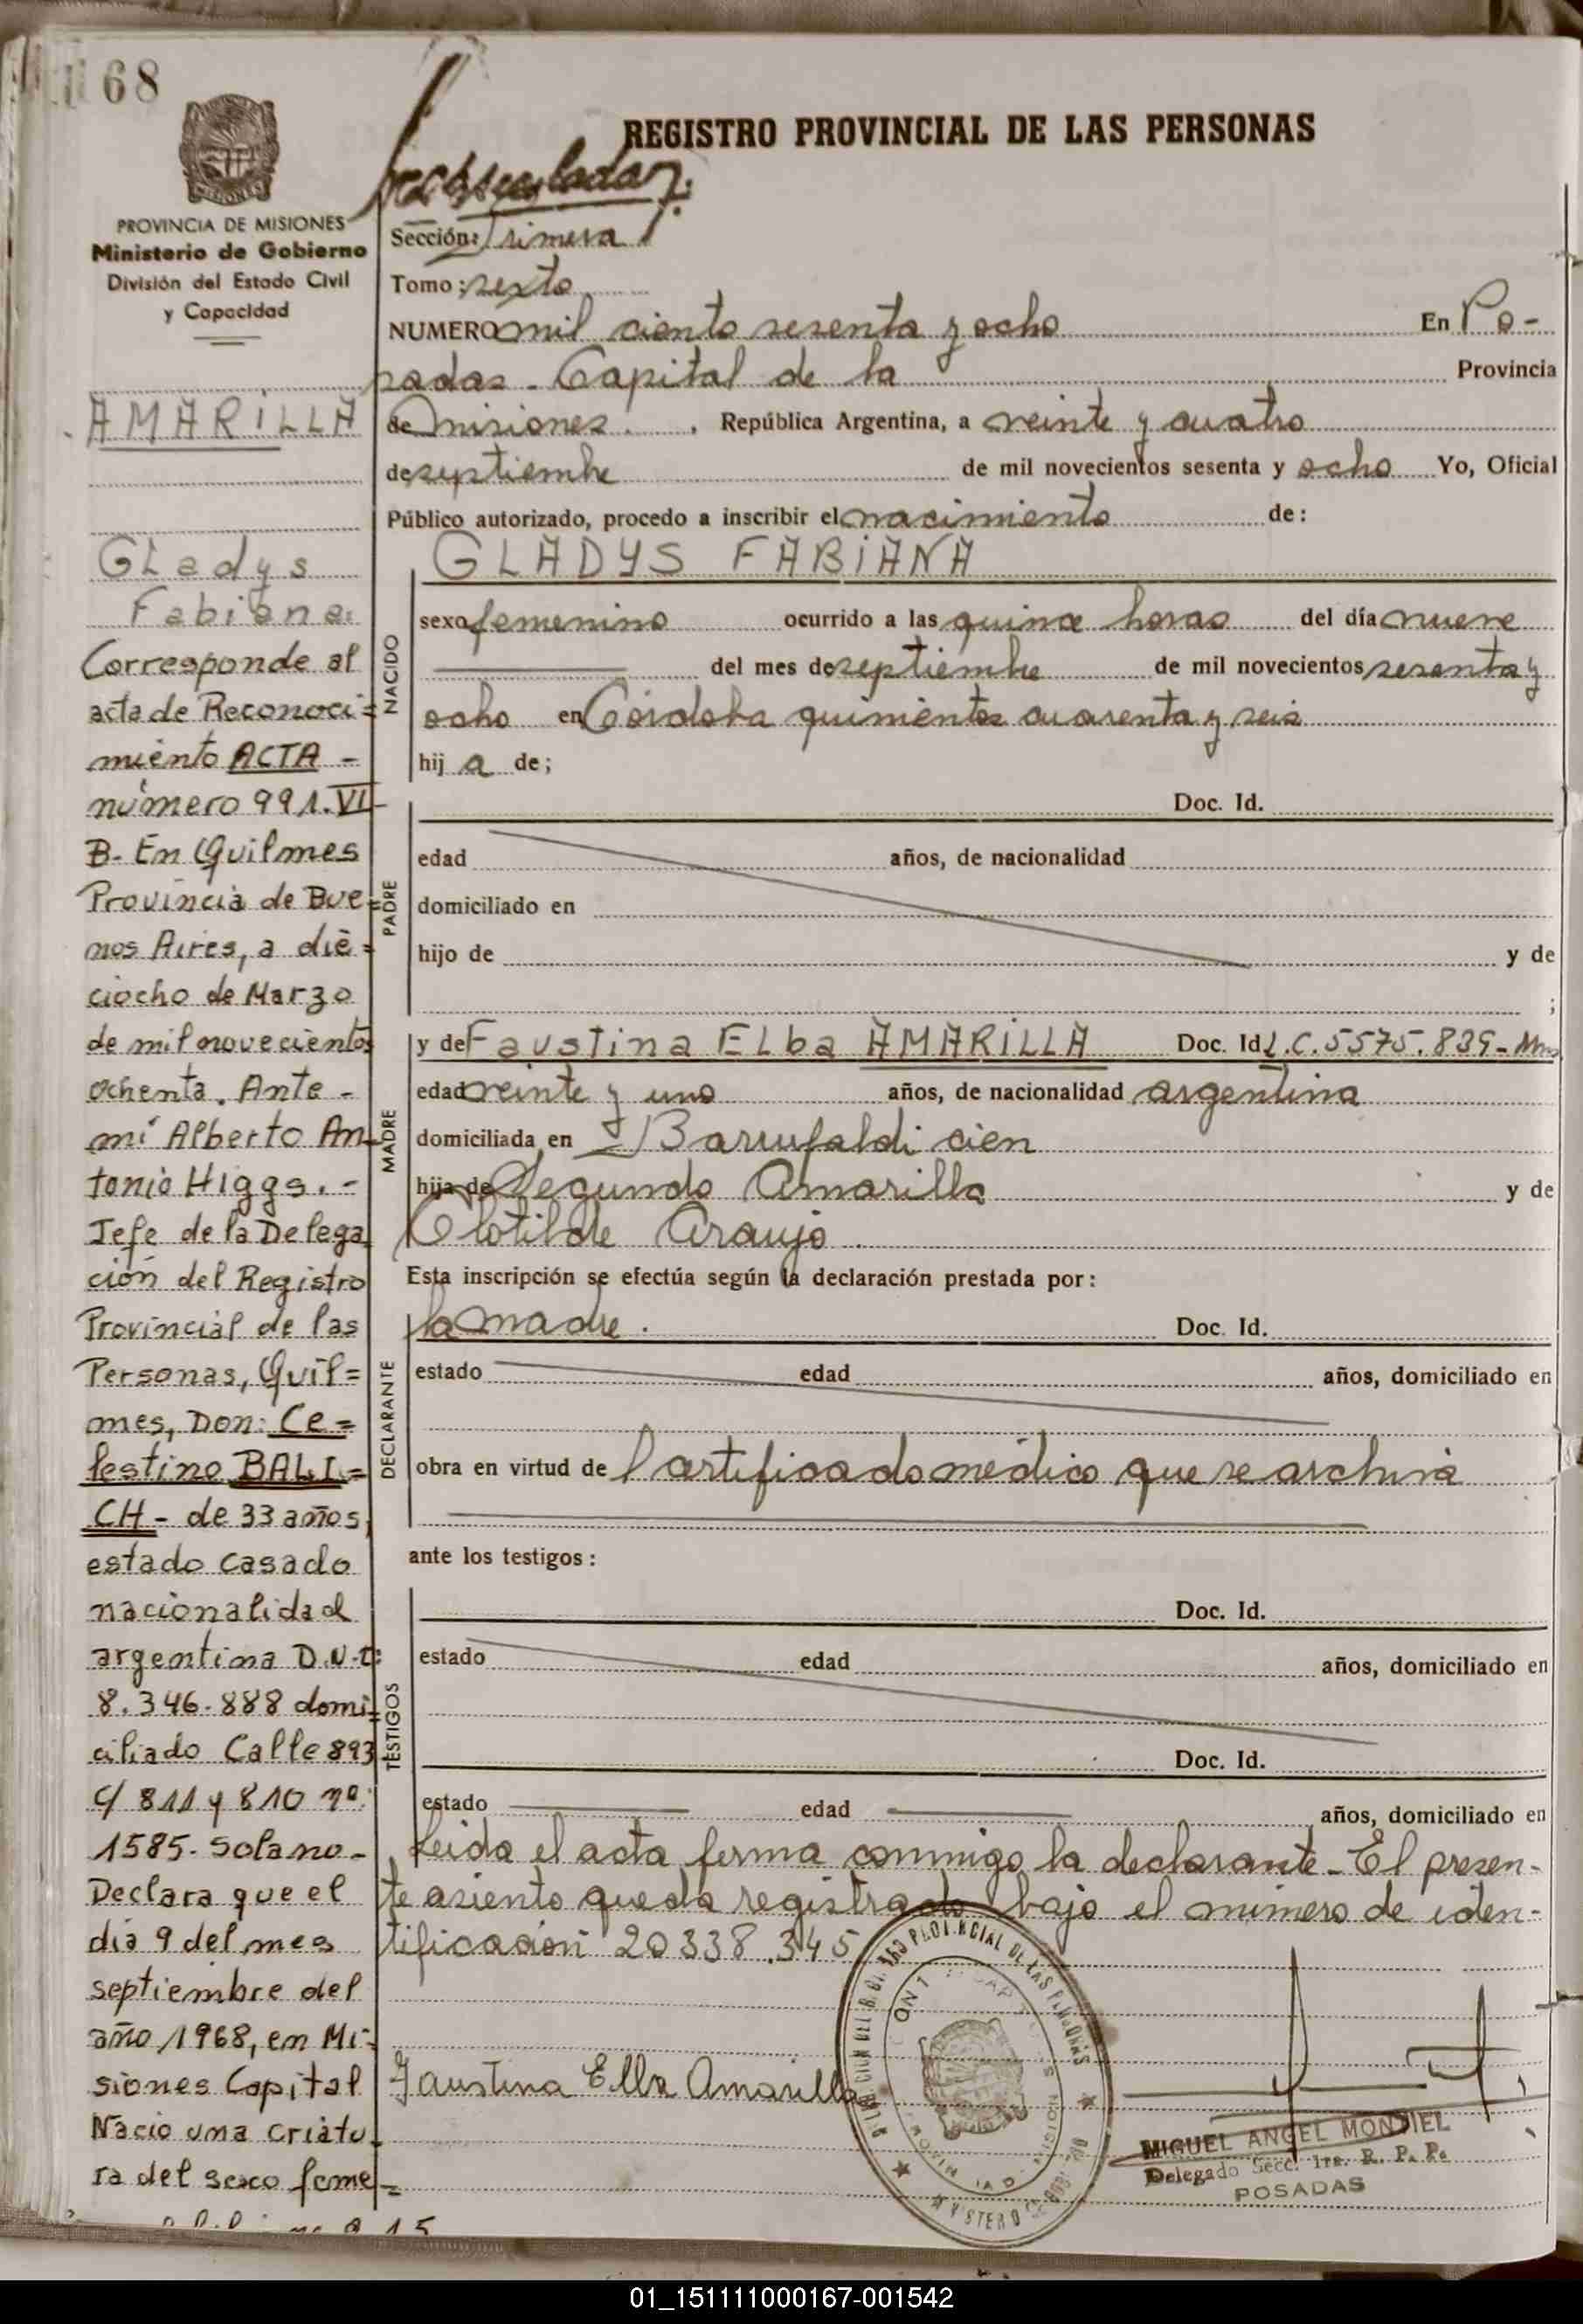 68
REGISTRO PROVINCIAL DE LAS PERSONAS
PROVINCIA DE MISIONES
Ministerio de Gobierno
División del Estado Civil
y Capacidad
AMARILLA
Gladys
Fabiana
Corresponde al
acta de Reconoci=
miento ACTA -
número 991. VI-
B- En Quilmes
Provincia de Bue=
nos Aires, a die=
ciocho de Marzo
de mil novecientos
ochenta. Ante -
mí Alberto An-
tonio Higgs. -
Jefe de la Delega
ción del Registro
Provincial de las
Personas, Quil=
mes, Don: Ce=
lestino BALI=
CH - de 33 años,
estado casado
nacionalidad
argentina D.N.I:
8.346.888 domi=
ciliado Calle 893
c/ 811 y 810 nº:
1585. Solano -
Declara que el
día 9 del mes
septiembre del
año 1968, en Mi=
siones Capital
Nació una criatu
ra del sexo feme=
Sección: Primera
Tomo; sexto
NUMERO mil ciento sesenta y ocho En Po-
sadas - Capital de la Provincia
de Misiones. , República Argentina, a veinte y cuatro
de septiembre de mil novecientos sesenta y ocho Yo, Oficial
Público autorizado, procedo a inscribir el nacimiento de:
GLADYS FABIANA
NACIDO
sexo femenino ocurrido a las quince horas del día nueve
del mes de septiembre de mil novecientos sesenta y
ocho en Córdoba quinientos cuarenta y seis
hij a de;
Doc. Id.
PADRE
edad años, de nacionalidad
domiciliado en
hijo de y de
;
y de Faustina Elba AMARILLA Doc. Id L.C. 5575.839- Mns
MADRE
edad veinte y uno años, de nacionalidad argentina
domiciliada en Barrufaldi cien
hija de Segundo Amarilla y de
Clotilde Araujo.
Esta inscripción se efectúa según la declaración prestada por:
la madre. Doc. Id.
DECLARANTE
estado edad años, domiciliado en
obra en virtud de l certificado médico que se archiva
ante los testigos:
Doc. Id.
TESTIGOS
estado edad años, domiciliado en
Doc. Id.
estado edad años, domiciliado en
Leida el acta firma conmigo la declarante - El presen-
te asiento queda registrado bajo el número de iden-
tificación 20338.345
Faustina Elba Amarilla
MIGUEL ANGEL MONTIEL
Delegado Secc. 1ra. R. P. P.
POSADAS
01_151111000167-001542